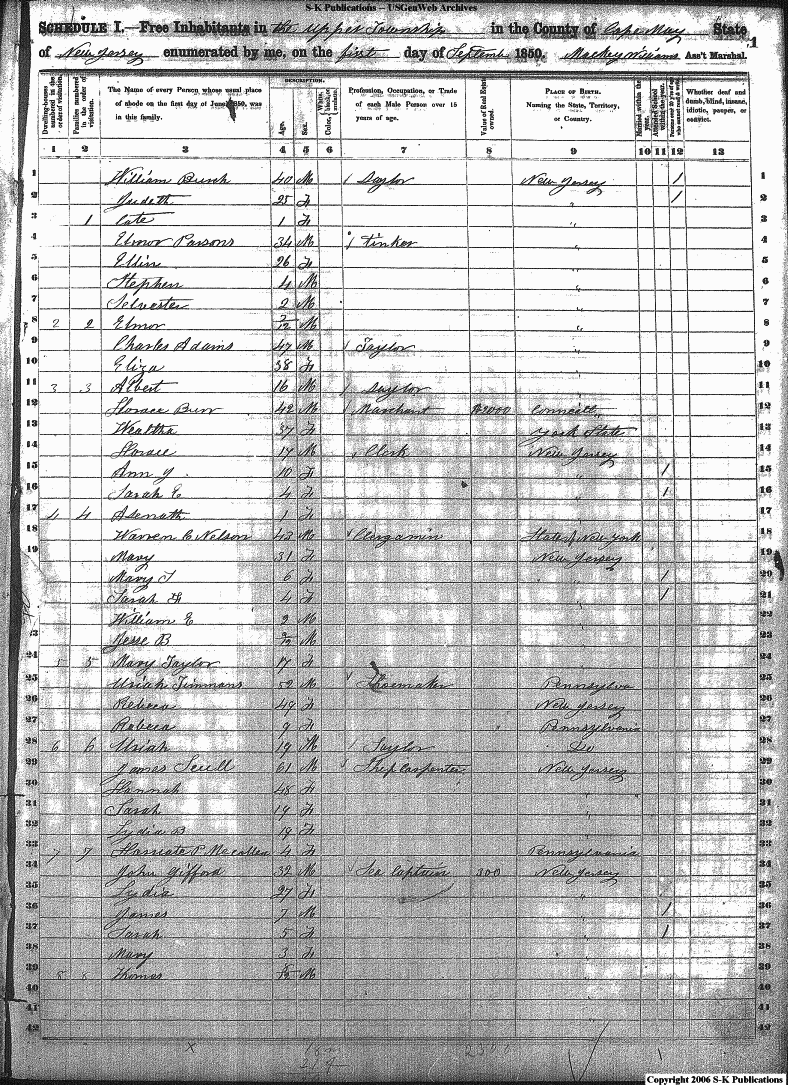 S-K Publications – USGenWeb Archives
SCHEDULE I.—Free Inhabitants in the Upper Township in the County of Cape May State
of New Jersey enumerated by me, on the first day of Septemb 1850. Mackey Williams Ass't Marshal. 1
DESCRIPTION.
Dwelling-houses numbered in the order of visitation. Families numbered in the order of visitation. The Name of every Person whose usual place of abode on the first day of June, 1850, was in this family. Age. Sex. Color, White, black, or mulatto. Profession, Occupation, or Trade of each Male Person over 15 years of age. Value of Real Estate owned. PLACE OF BIRTH. Naming the State, Territory, or Country. Married within the year. Attended School within the year. Persons over 20 y'rs of age who cannot read & write. Whether deaf and dumb, blind, insane, idiotic, pauper, or convict.
1 2 3 4 5 6 7 8 9 10 11 12 13
1 William Burch 40 M / Saylor New Jersey / 1
2 Judath 25 F " / 2
3 1 Cate 1 F " 3
4 Elmor Parsons 34 M / Tinker " 4
5 Ellin 26 F " 5
6 Stephen 4 M " 6
7 Selvester 2 M " 7
8 2 2 Elmor 2/12 M " 8
9 Charles Adams 47 M / Taylor " 9
10 Eliza 38 F " 10
11 3 3 Albert 16 M / Saylor " 11
12 Horace Burr 42 M / Marchant $2000 Connectt 12
13 Wealtha 37 F York State 13
14 Horace 17 M / Clerk New Jersey 14
15 Ann Y 10 F " / 15
16 Sarah E 4 F " / 16
17 4 4 Asenath 1 F " 17
18 Warren C Nelson 43 M / Clergamin State of New York 18
19 Mary 31 F New Jersey 19
20 Mary T 6 F " / 20
21 Sarah H 4 F " / 21
22 William E 2 M " 22
23 Jesse B 2/12 M " 23
24 5 5 Mary Taylor 17 F " 24
25 Uriah Timmans 52 M / Shoemaker Pennsylva 25
26 Rebecca 49 F New Jersey 26
27 Rebecca 9 F Pennsylvania 27
28 6 6 Uriah 19 M / Saylor Do 28
29 James Scull 61 M / Ship Carpenter New Jersey 29
30 Hannah 48 F " 30
31 Sarah 19 F " 31
32 Lydia B 19 F " 32
33 7 7 Harriate P McCallan 4 F Pennsylvania 33
34 John Gifford 32 M / Sea Captain 300 New Jersey 34
35 Lydia 27 F " 35
36 James 7 M " / 36
37 Sarah 5 F " / 37
38 Mary 3 F " 38
39 8 8 Thomas M " 39
40 40
41 41
42 42
x 2300
Copyright 2006 S-K Publications